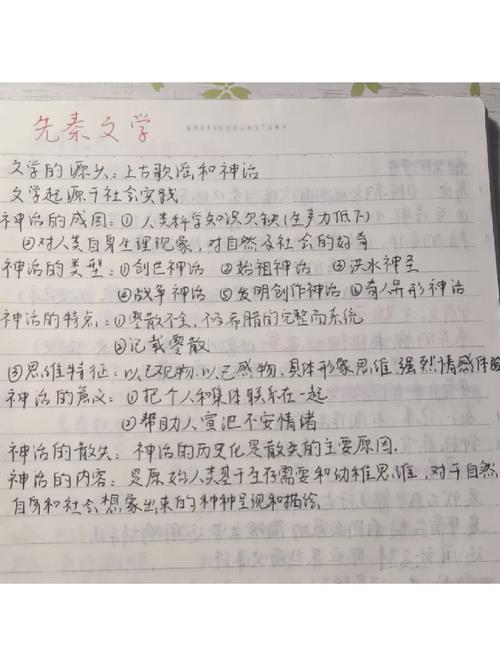 先秦文学
WRITING OUR STORY
文学的源头：上古歌谣和神话
文学起源于社会实践
神话的成因：①人类科学知识欠缺(生产力低下)
②对人类自身生理现象，对自然及社会的好奇
神话的类型：①创世神话 ②始祖神话 ③洪水神
④战争神话 ⑤发明创作神话 ⑥奇人异形神话
神话的特点：①零散不全，不及希腊的完整而系统
②记载零散
③思维特征：以己观物.以己感物，具体形象思维，强烈情感体
神话的意义：①把个人和集体联系在一起
②帮助人宣泄不安情绪
神话的散失：神话的历史化是散失的主要原因.
神话的内容：是原始人类基于生存需要和幼稚思维，对于自然
自身和社会想象出来的种种呈现和描绘